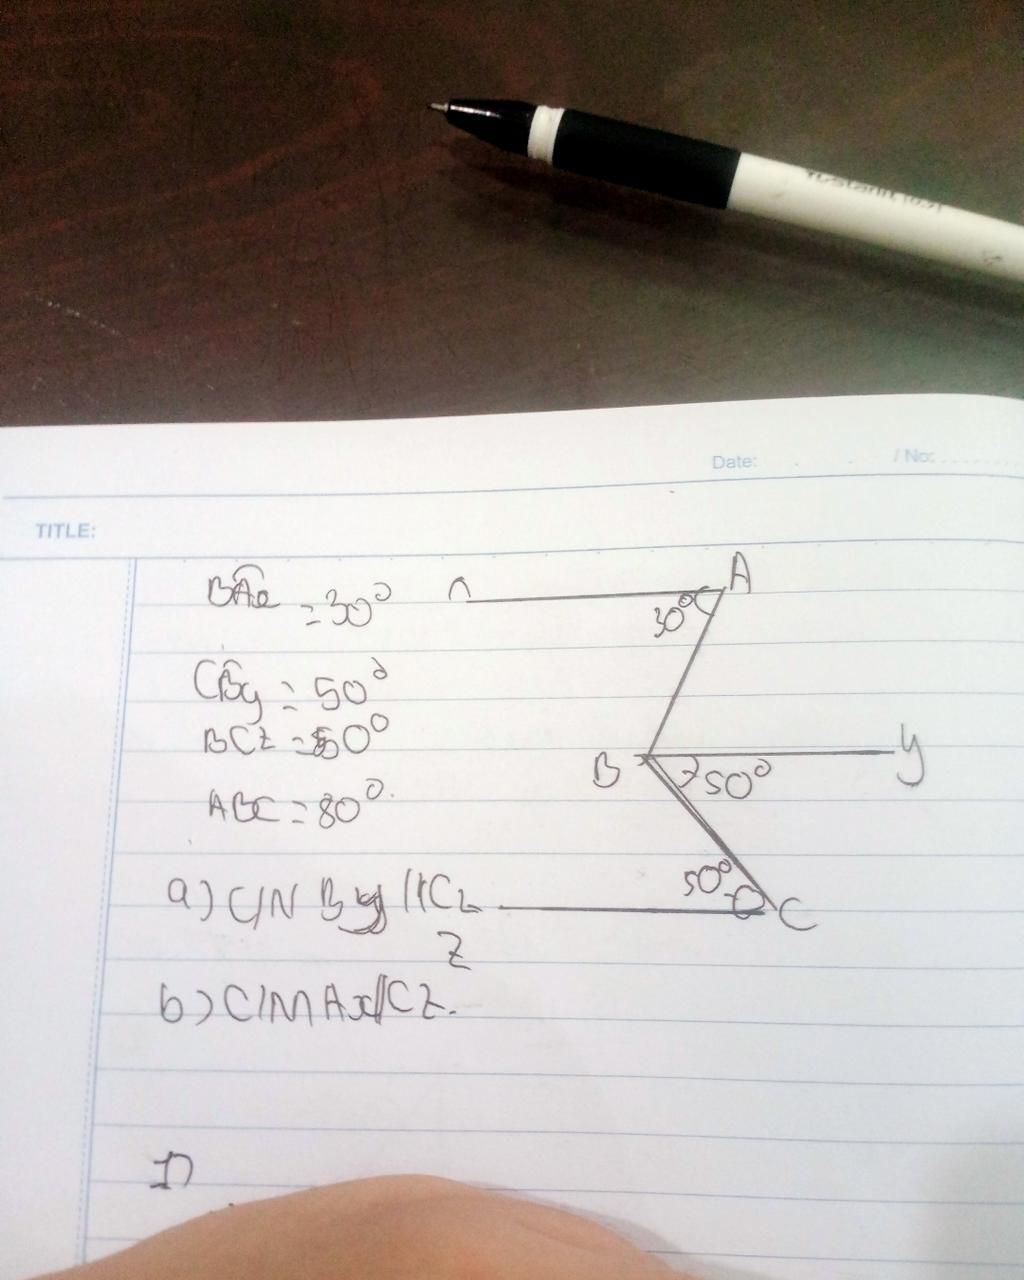 Date: / No:
TITLE:
BAx = 30°
CBy = 50°
BCz = 50°
ABC = 80°
a) C/N By // Cz
b) C/M Ax // Cz.
A
30°
B
50°
y
50°
C
z